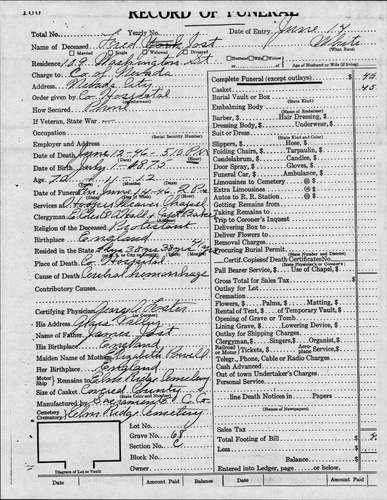 RECORD OF FUNERAL
Total No.
Date of Entry June 14
Name of Deceased Fred Jost
White
Married Single Widowed Divorced
Husband Wife
Age of Husband or Wife (if living)
Residence 109 Washington St
Charge to Co of Nevada
Nevada City
Order given by Co Hospital
How Secured Phone
If Veteran, State War
Occupation
(Social Security Number)
Employer and Address
Date of Death June 12-46- 5:10 P.M.
Date of Birth 1875
Age
Date of Funeral June 14-46 2 P.M.
Services at Hooper Weaver Chapel
Clergyman
Religion of the Deceased Protestant
Birthplace England
Resided in the State
Place of Death Co Hospital
Cause of Death Cerebral hemorrhage
Contributory Causes
Certifying Physician
His Address Grass Valley
Name of Father James Jost
His Birthplace England
Maiden Name of Mother Elizabeth Powell
Her Birthplace England
Remains to Elm Ridge Cemetery
Size of Casket
Manufactured by Sacramento C. Co
Cemetery
Crematory Elm Ridge Cemetery
Lot No.
Grave No. 68
Section No. C
Block No.
Owner
Diagram of Lot or Vault
Complete Funeral (except outlays) $ 45
Casket 45
Burial Vault or Box
(State Kind)
Embalming Body
Barber, Hair Dressing
Dressing Body, Underwear
Suit or Dress
(State Kind and Color)
Slippers, Hose,
Folding Chairs, Tarpaulin,
Candelabrum, Candles,
Door Spray, Gloves,
Funeral Car, Ambulance,
Limousines to Cemetery @
Extra Limousines @
Autos to R. R. Station @
Getting Remains
Taking Remains to
Trip to Coroner's Inquest
Delivering Box to
Deliver Flowers to
Removal Charges
Procuring Burial Permit
Certif. Copies of Death Certificates No.
Pall Bearer Service, Use of Chapel,
Gross Total for Sales Tax
Outlay for Lot
Cremation
Flowers, Palms, Matting,
Rental of Tent, of Temporary Vault,
Opening of Grave or Tomb
Lining Grave, Lowering Device,
Outlay for Shipping Charges
Clergyman, Singers, Organist,
Telegr., Phone, Cable or Radio Charges
Cash Advanced
Out of town Undertaker's Charges
Personal Service
line Death Notices in Papers
(Names of Newspapers)
Sales Tax
Total Footing of Bill
Less
Balance
Entered into Ledger, page or below.
Date Amount Paid Date Amount Paid Date Amount Paid